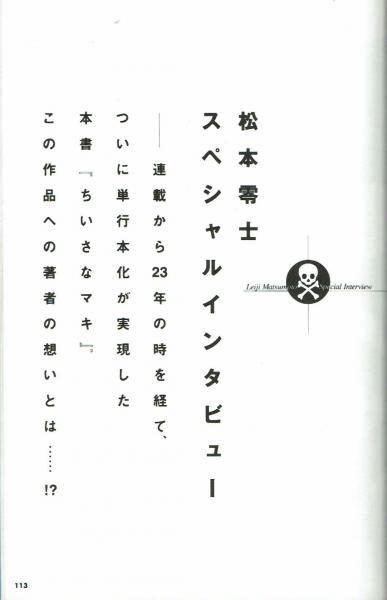 松本零士
スペシャルインタビュー
Leiji Matsumoto Special Interview
――連載から23年の時を経て、
ついに単行本化が実現した
本書『ちいさなマキ』。
この作品への著者の想いとは……!?
113